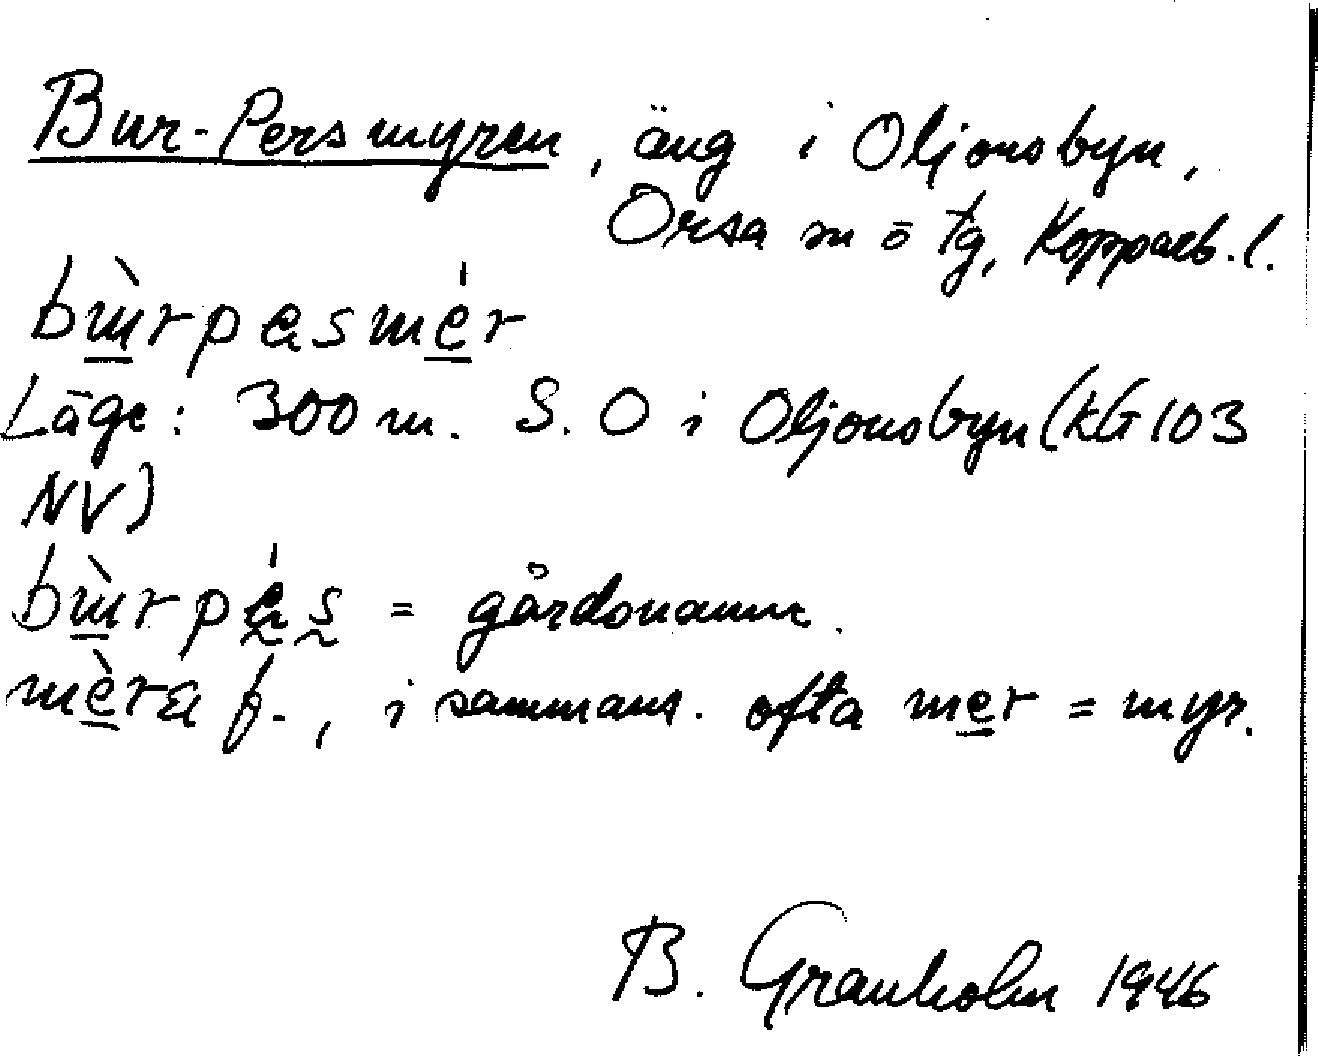 Bur-Persmyren, äng i Oljonsbyn,
Orsa sn o tg, Kopparb. l.
bu̠̇̀rpɐsme̠̍r
Läge: 300 m. S. O i Oljonsbyn (KG 103
NV)
bu̠̇̀rpɐ̰̍s̰ = gårdsnamn.
mè̠rɐ f., i sammans. ofta me̠r = myr.
B. Granholm 1946